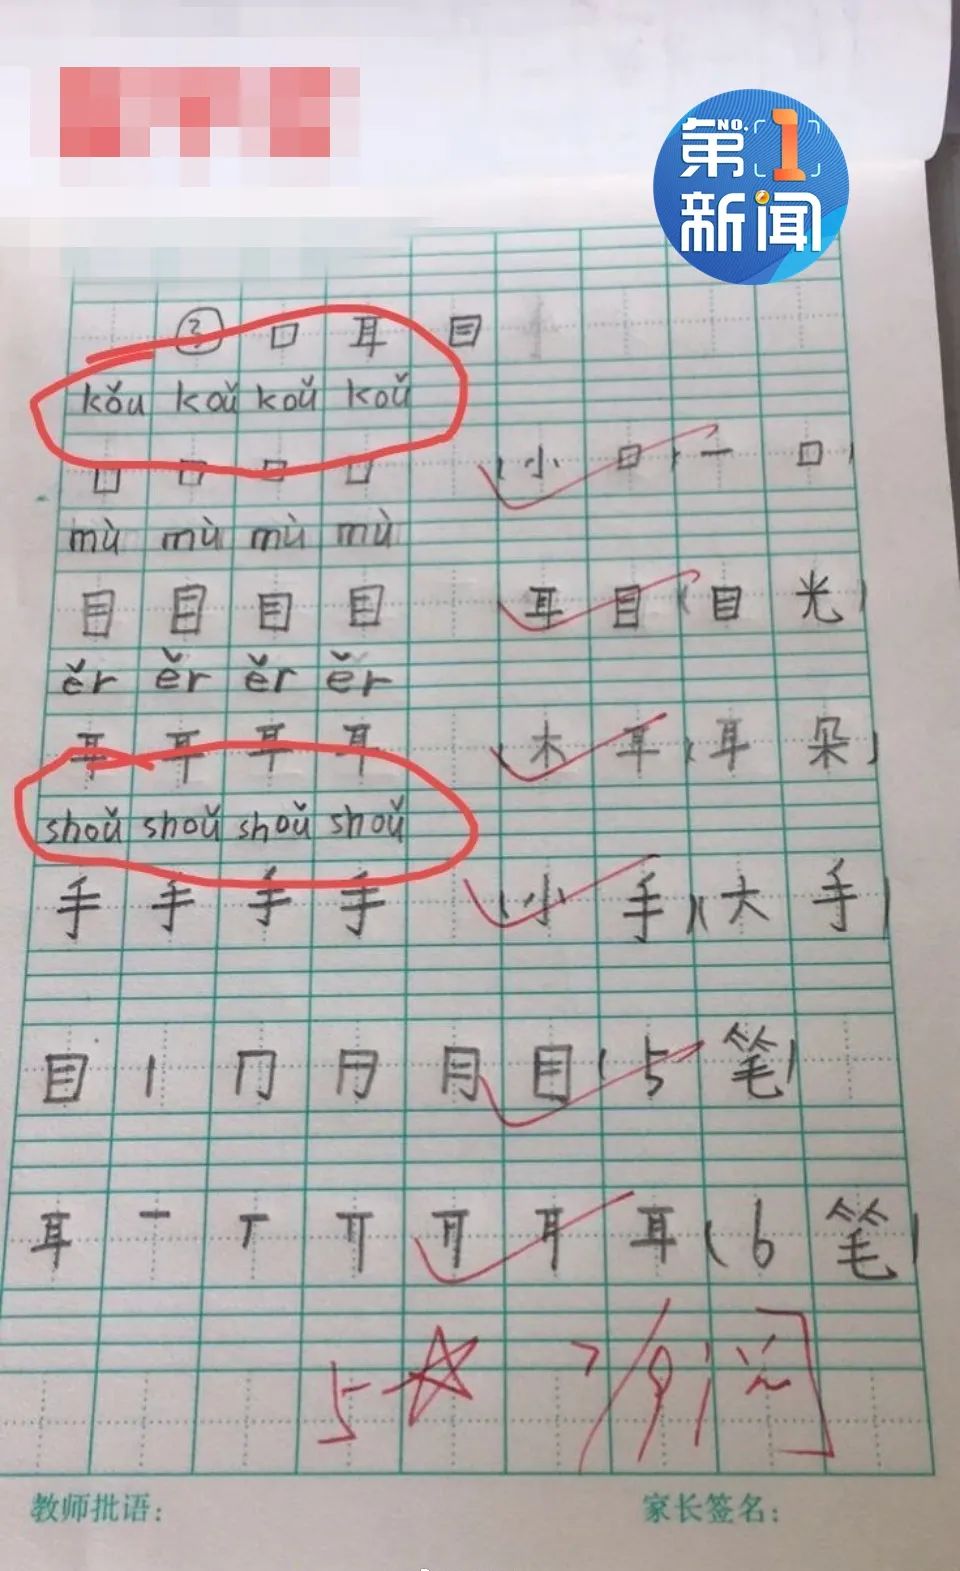 第1新闻
NO.
③ 口 耳 目
kǒu koǔ koǔ koǔ
口 口 口 口 (小口)(一口)
mù mù mù mù
目 目 目 目 (耳目)(目光)
ěr ěr ěr ěr
耳 耳 耳 耳 (木耳)(耳朵)
shoǔ shoǔ shoǔ shoǔ
手 手 手 手 (小手)(大手)
目 丨 冂 月 目 (5笔)
耳 一 丅 耳 (6笔)
5☆ 7/9 阅
教师批语: 家长签名: